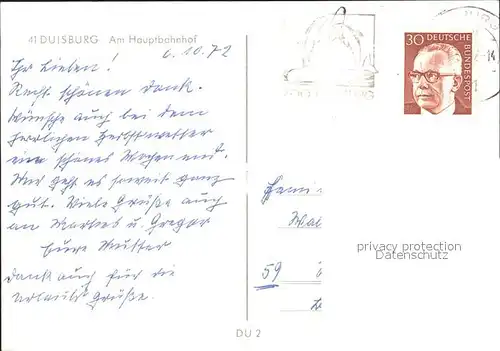 41 DUISBURG Am Hauptbahnhof
6.10.72
Ihr Lieben!
Recht schönen Dank.
Wünsche auch bei dem
herrlichen Herbstwetter
ein schönes Wochenend.
Mir geht es soweit ganz
gut. Viele Grüße auch
an Markus u. Gregor
Eure Mutter
Dank auch für die
Urlaubsgrüße.
30 DEUTSCHE
BUNDESPOST
14
Fami
Wal
privacy protection
Datenschutz
59
DU 2